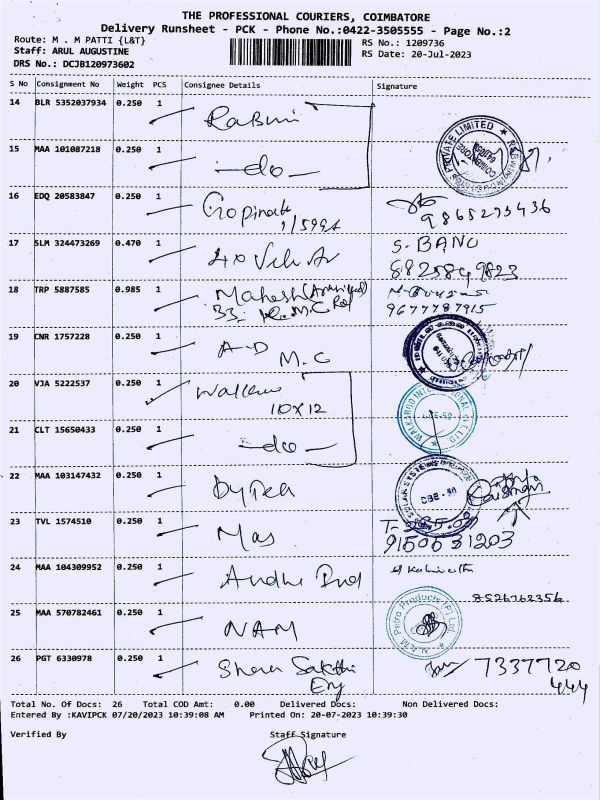 THE PROFESSIONAL COURIERS, COIMBATORE
Delivery Runsheet - PCK - Phone No.:0422-3505555 - Page No.:2
Route: M . M PATTI {L&T}
RS No.: 1209736
Staff: ARUL AUGUSTINE
RS Date: 20-Jul-2023
DRS No.: DCJB120973602
S No Consignment No Weight PCS Consignee Details Signature
14 BLR 5352037934 0.250 1
15 MAA 101087218 0.250 1 -do-
PRIVATE LIMITED
16 EDQ 20583847 0.250 1 Gopinath
9865273436
17 SLM 324473269 0.470 1 S. BANU
8825849823
18 TRP 5887585 0.985 1 Mahesh
33, K.M.C
9677787915
19 CNR 1757228 0.250 1 A.D
M.C
20 VJA 5222537 0.250 1
10X12
21 CLT 15650433 0.250 1 -do-
22 MAA 103147432 0.250 1
CBE - 50
23 TVL 1574510 0.250 1 Mas
9150051203
24 MAA 104309952 0.250 1
8526762356
25 MAA 570782461 0.250 1 NAM
Petro Products (P) Ltd
26 PGT 6330978 0.250 1 Sakthi
7337720
444
Total No. Of Docs: 26 Total COD Amt: 0.00 Delivered Docs: Non Delivered Docs:
Entered By :KAVIPCK 07/20/2023 10:39:08 AM Printed On: 20-07-2023 10:39:30
Verified By Staff Signature